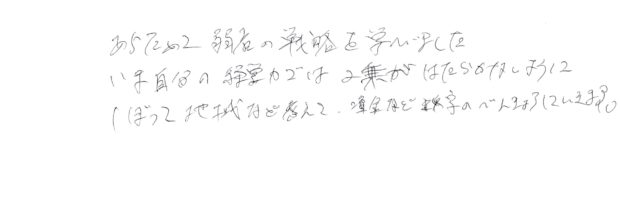 あらためて弱者の戦略を学いました
いま自分の経営力では2乗がはたらかないように
しぼって地域など考えて、準見など数字のべんきょうしていきます。